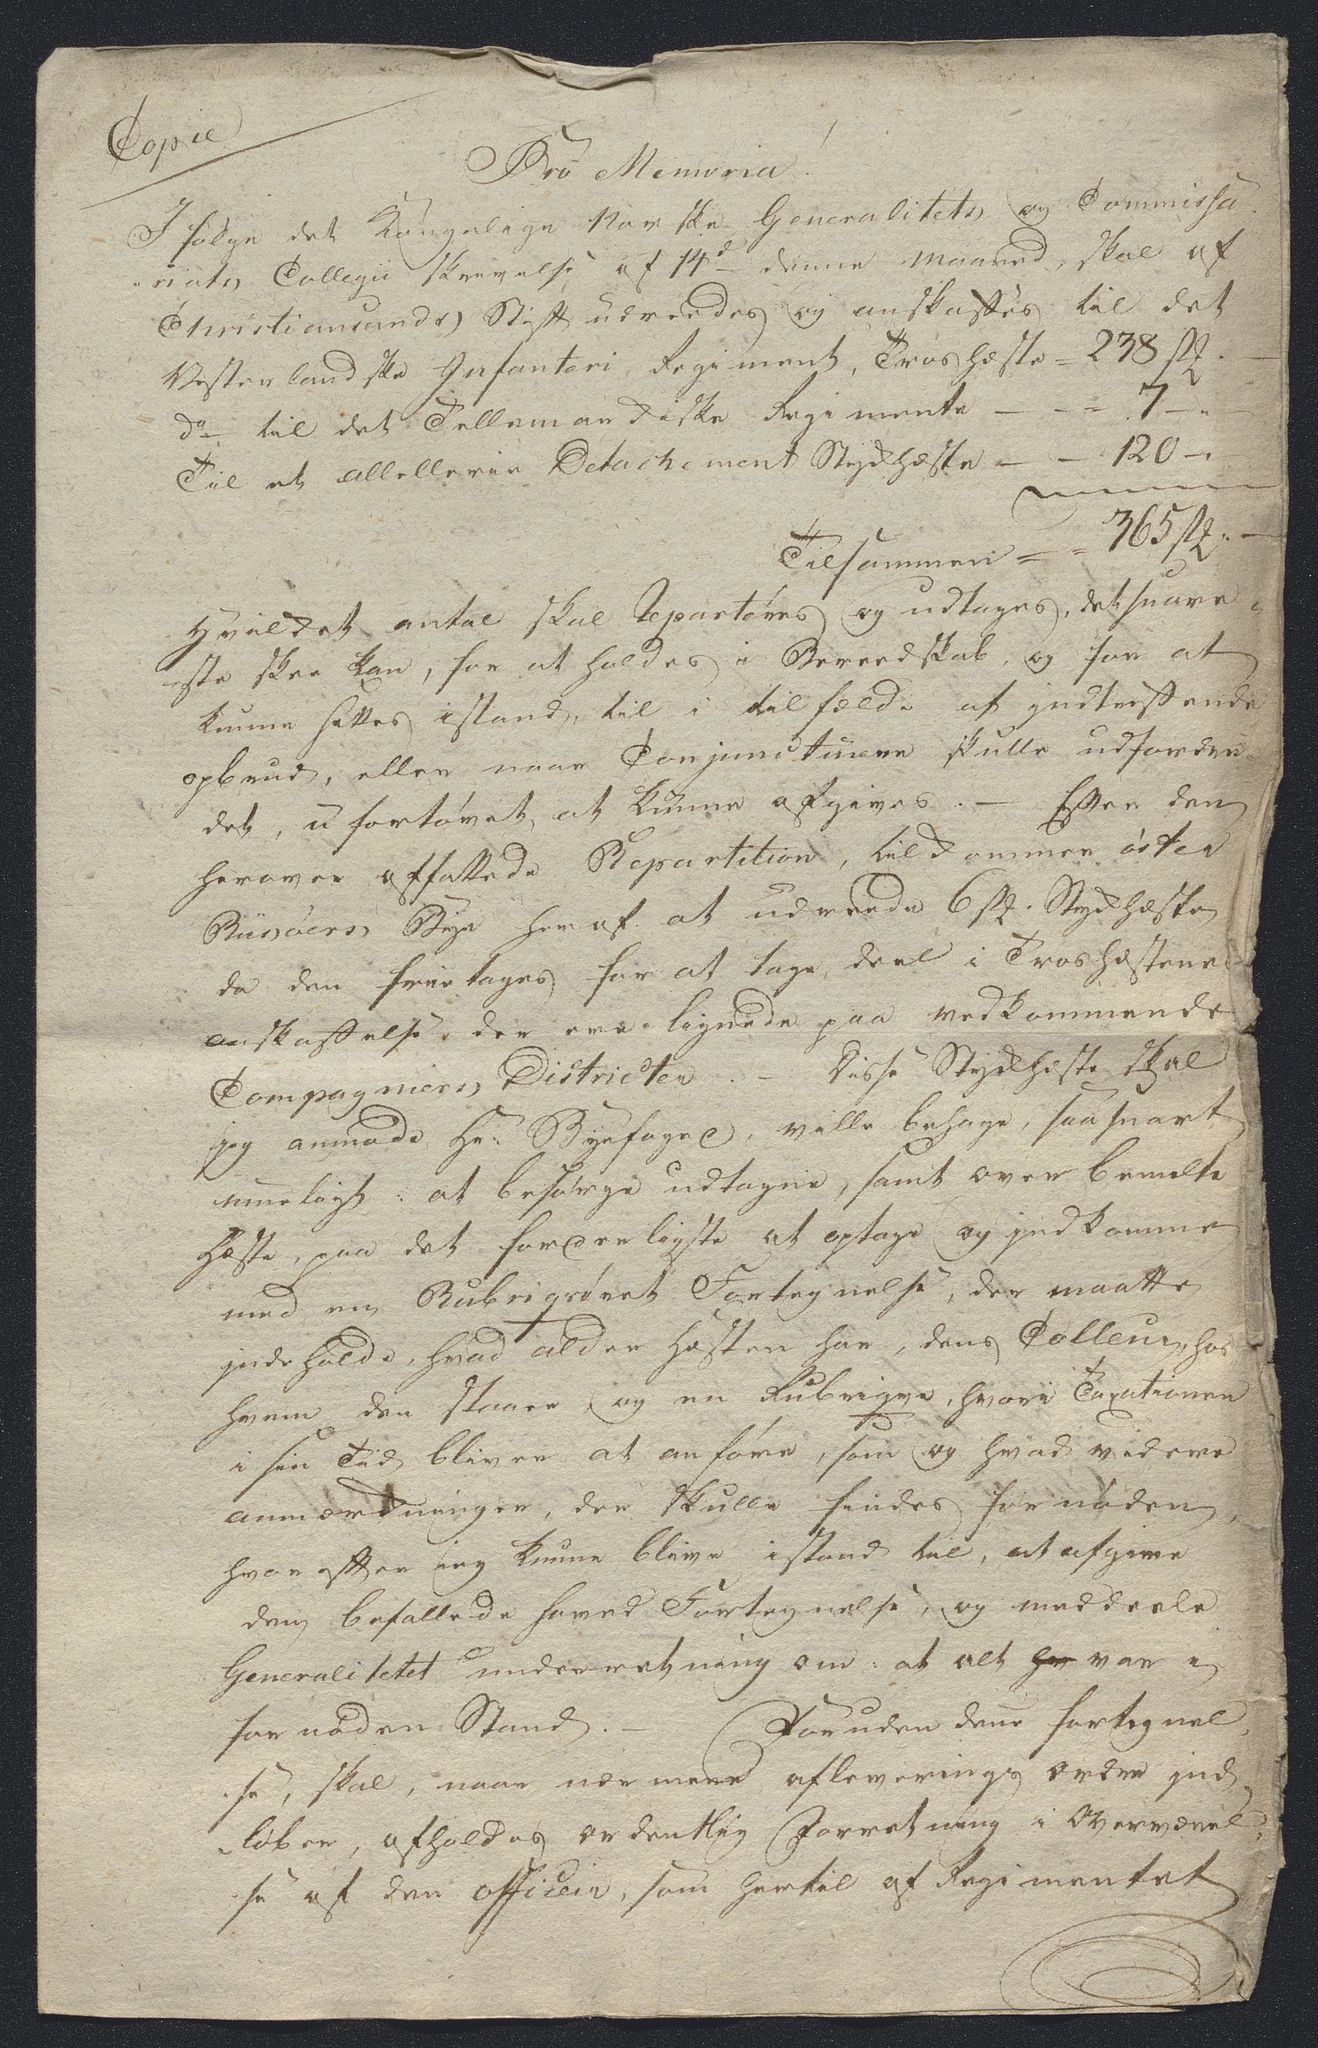 Copie
Pro Memoria.
I følge det Kongelige Norske Generalitets og Commissa
riats Collegii skrivelse af 14d denne maaned, skal af
Christiansands Stift udreedes og anskaffes til det
Vesterlandske Infanteri Regiment, Tros hæste = 238 stk. —
do — til det Tellemarkiske Regimente — - - 7 —.
Til et alellerie Detachement Stykhæste — - 120 —.
Tilsammen = = 365 stk. —
Hvilket antal skal Reparteres og udtages, det snare
ste skee kan, for at holdes i Bereedskab, og for at
kunne settes istand, til i tilfælde af indtreffende
opbrud, eller naar Conjuncturerne skulle udfordre
det, ufortøvet, at kunne afgives. — Efter den
herover affattede Repartition, tilkommer öster
Riisöers Bye heraf at udreede 6 stk. Stykhæste
da den fritages for at tage deel i Troshæstenes
anskaffelse, der ere lignede paa vedkommende
Compagniers Districter. — Disse Stykhæste skal
jeg anmode Hr: Byefoged, ville behage, saasnart
mueligt: at besørge udtagne, samt over bemelte
Hæste, paa det forderligste at optage og indkomme
med en Rubriqvèret Fortegnelse, der maatte
indeholde, hvad alder Hæsten har, dens Colleur, hos
hvem den staaer, og en Rubriqve, hvori Taxationen
i sin Tid bliver at anføre, som og hvad videre
anmærkninger, der skulle findes fornøden,
hvorefter jeg kunne blive istand til, at afgive
den befallede hoved Fortegnelse, og meddeele
Generalitetet underretning om: at alt var i
fornøden Stand. — Foruden denne fortegnel
se, skal, naar nærmere afleverings Ordre ind
løber, afholdes ordentlig Forretning i Overværel
se af den officeir, som hertil af Regimentet